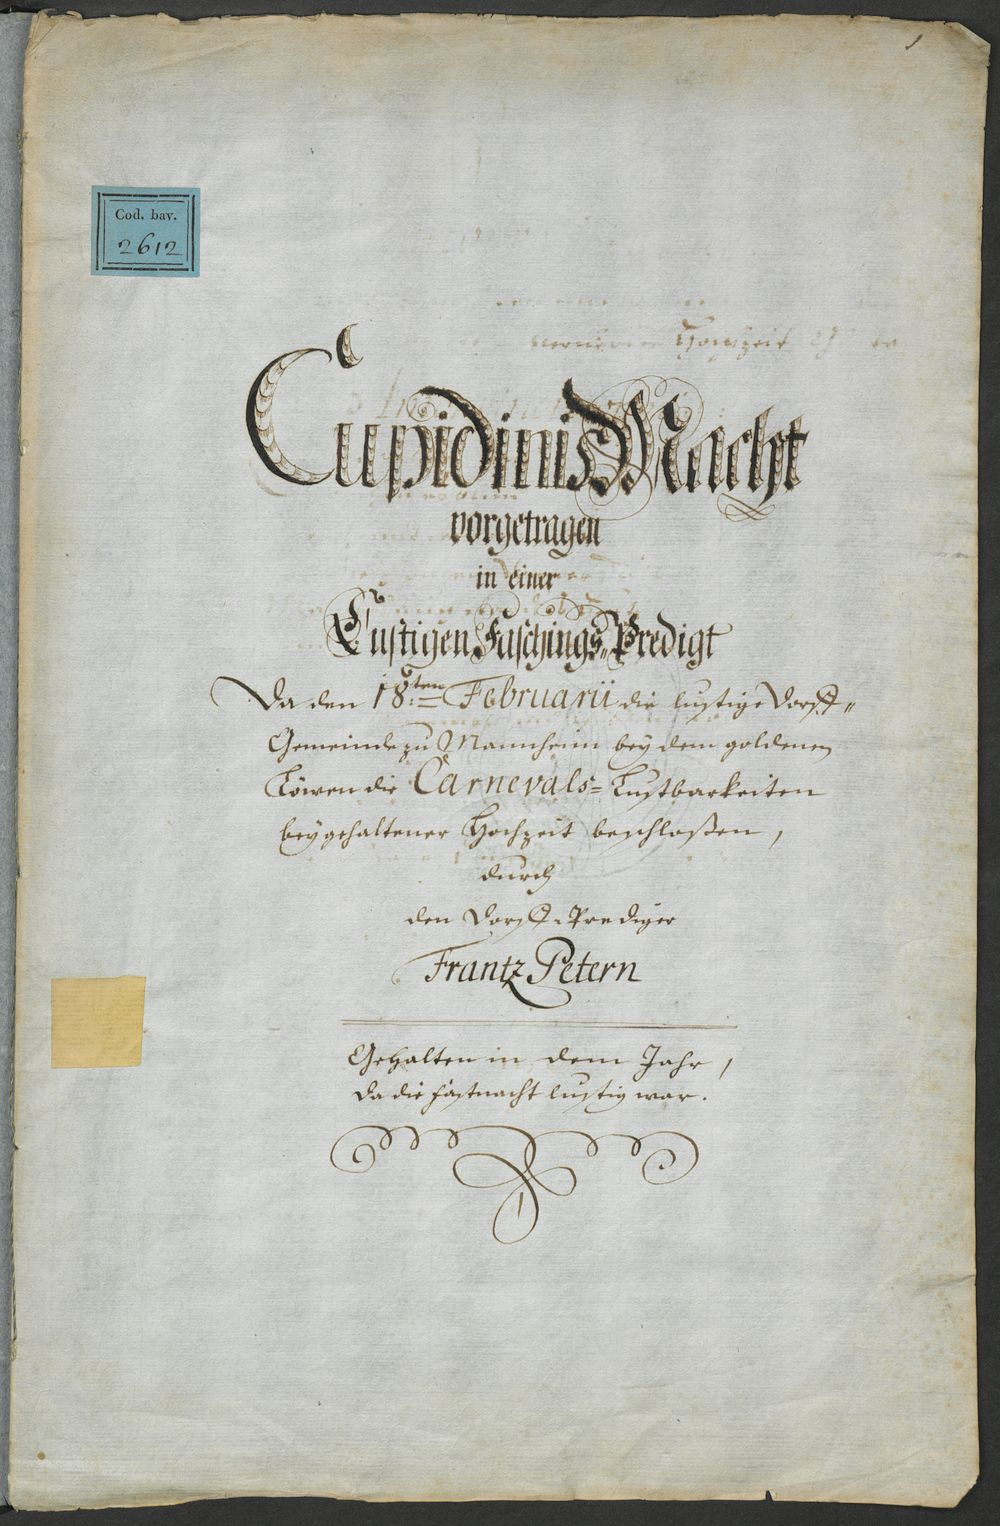 1
Cod. bav.
2612
Cupidinis Macht
vorgetragen
in einer
Lustigen Faschings„Predigt
Da den 18:ten Februarii die lustige Dorff„
Gemeinde zu Mannheim bey dem goldenen
Löwen die Carnevals=Lustbarkeiten
bey gehaltener Hochzeit beschloßen,
durch
den Dorff=Prediger
Frantz Petern
Gehalten in dem Jahr,
da die fastnacht lustig war.